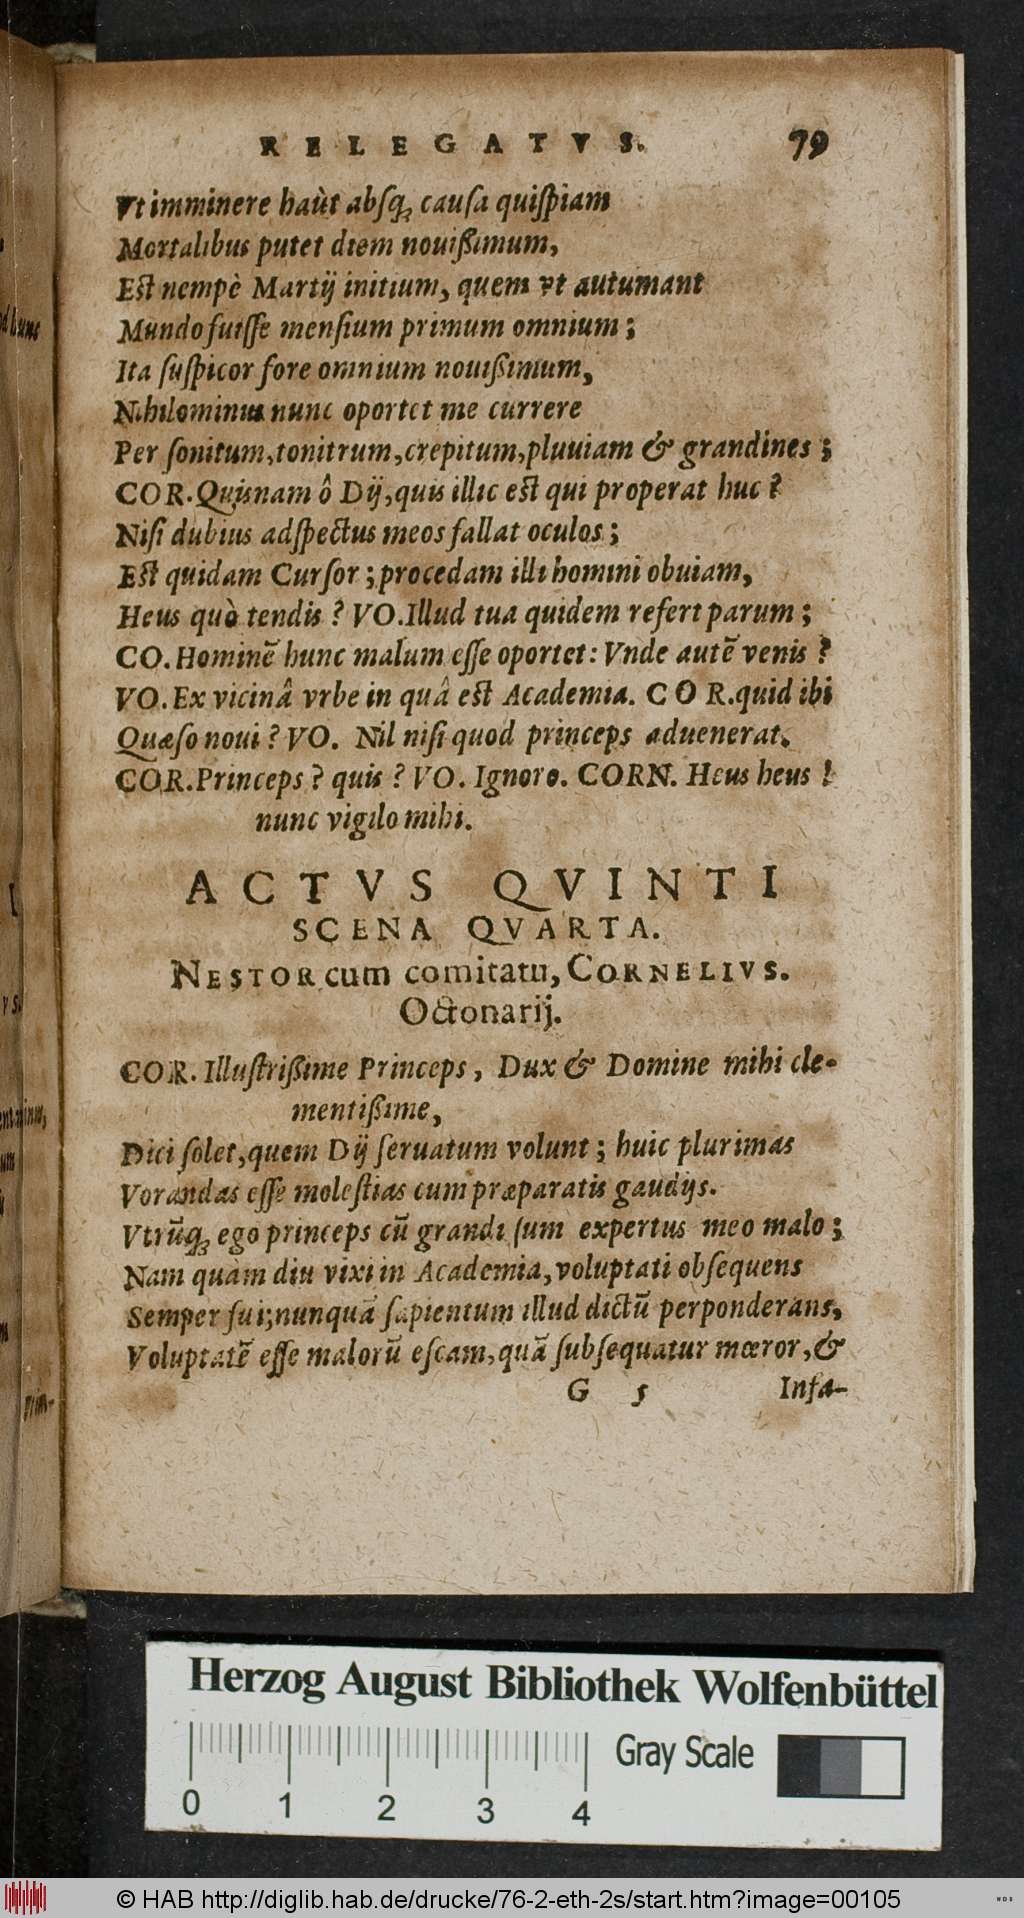 RELEGATVS. 79
Vt imminere haùt absq; causa quispiam
Mortalibus putet diem nouißimum,
Est nempè Martij initium, quem vt autumant
Mundo fuisse mensium primum omnium;
Ita suspicor fore omnium nouißimum,
Nihilominus nunc oportet me currere
Per sonitum, tonitrum, crepitum, pluuiam & grandines;
COR. Quisnam ô Dij, quis illic est qui properat huc?
Nisi dubius adspectus meos fallat oculos;
Est quidam Cursor; procedam illi homini obuiam,
Heus quò tendis? VO. Illud tua quidem refert parum;
CO. Hominē hunc malum esse oportet: Vnde autē venis?
VO. Ex vicinâ vrbe in quâ est Academia. COR. quid ibi
Quæso noui? VO. Nil nisi quod princeps aduenerat.
COR. Princeps? quis? VO. Ignoro. CORN. Heus heus!
nunc vigilo mihi.
ACTVS QVINTI
SCENA QVARTA.
NESTOR cum comitatu, CORNELIVS.
Octonarij.
COR. Illustrißime Princeps, Dux & Domine mihi cle-
mentißime,
Dici solet, quem Dij seruatum volunt; huic plurimas
Vorandas esse molestias cum præparatis gaudijs.
Vtrūq; ego princeps cū grandi sum expertus meo malo;
Nam quàm diu vixi in Academia, voluptati obsequens
Semper fui; nunquā sapientum illud dictū perponderans,
Voluptatē esse malorū escam, quā subsequatur mœror, &
G 5 Infa-
Herzog August Bibliothek Wolfenbüttel
0 1 2 3 4
Gray Scale
© HAB http://diglib.hab.de/drucke/76-2-eth-2s/start.htm?image=00105